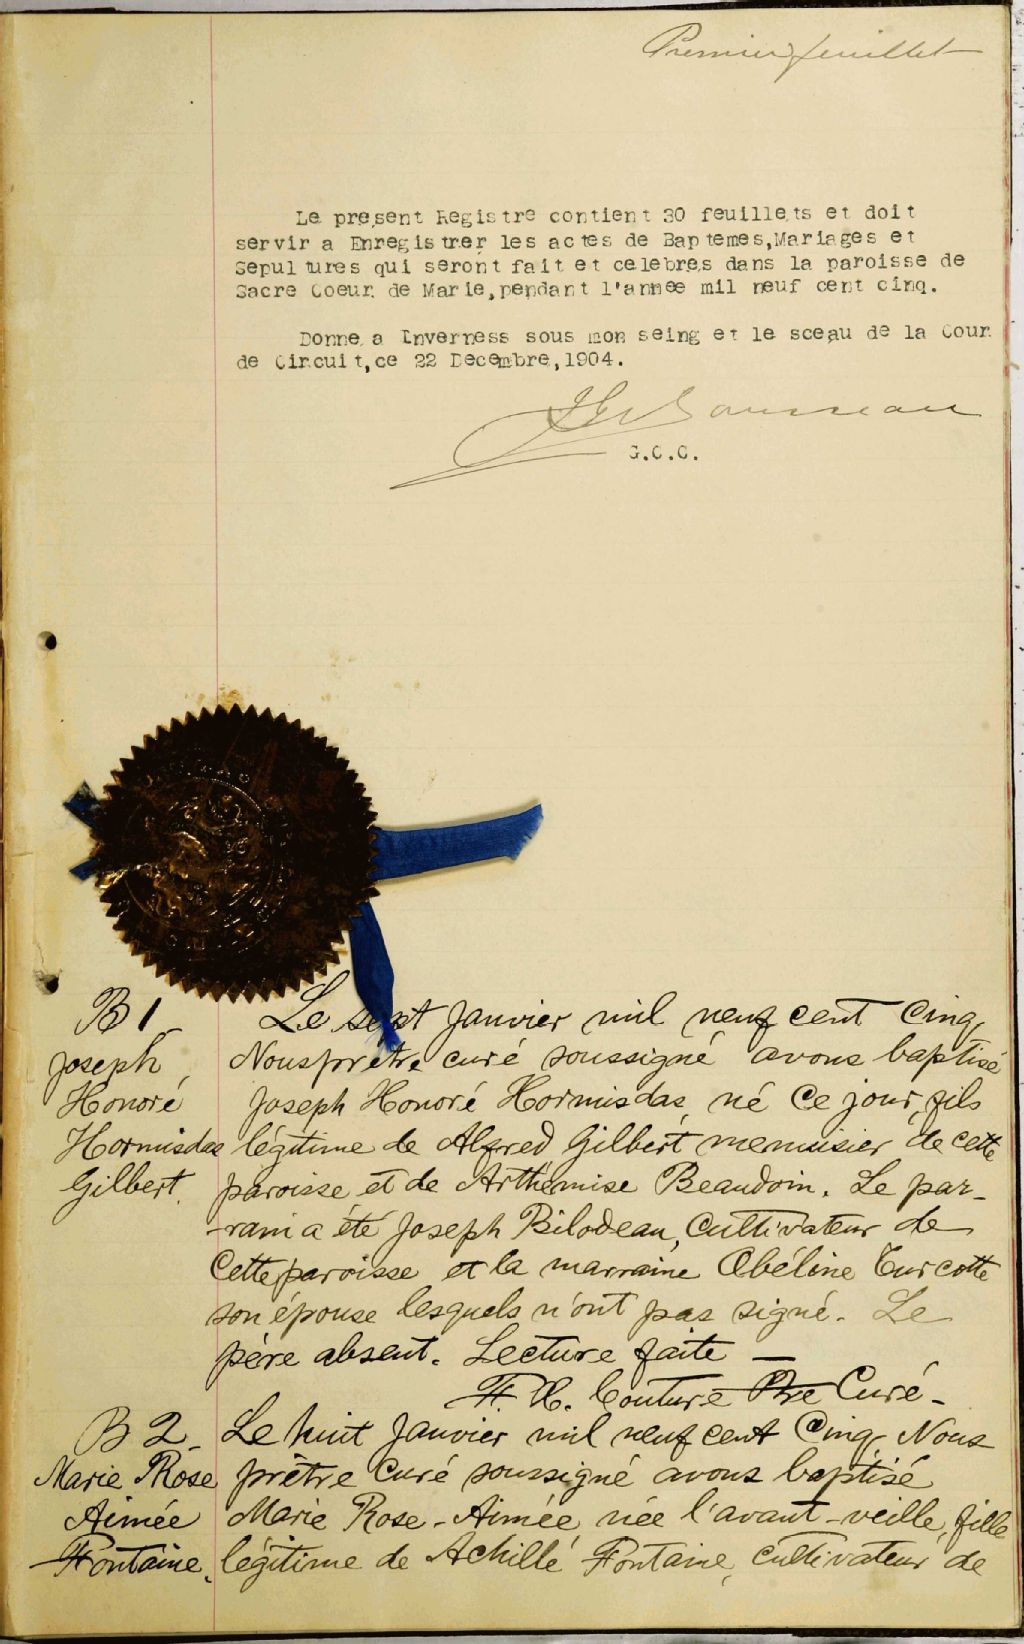 Premier feuillet
Le present Registre contient 30 feuillets et doit
servir a Enregistrer les actes de Baptemes,Mariages et
Sepultures qui seront fait et celebres dans la paroisse de
Sacre Coeur de Marie,pendant l'annee mil neuf cent cinq.
Donne a Inverness sous mon seing et le sceau de la Cour
de Circuit,ce 22 Decembre,1904.
G.C.C.
B 1
Joseph
Honoré
Hormisdas
Gilbert
Le sept Janvier mil neuf cent Cinq,
Nous prêtre curé soussigné avons baptisé
Joseph Honoré Hormisdas, né Ce jour, fils
légitime de Alfred Gilbert menuisier de cette
paroisse et de Arthémise Beaudoin. Le par-
-rain a été Joseph Bilodeau, Cultivateur de
Cette paroisse et la marraine Obéline Turcotte
son épouse lesquels n'ont pas signé. Le
père absent. Lecture faite —
F. X. Couture Ptre Curé-
B 2-
Marie Rose
Aimée
Fontaine.
Le huit Janvier mil neuf cent Cinq, Nous
prêtre Curé soussigné avons baptisé
Marie Rose-Aimée née l'avant-veille, fille
légitime de Achille Fontaine, Cultivateur de